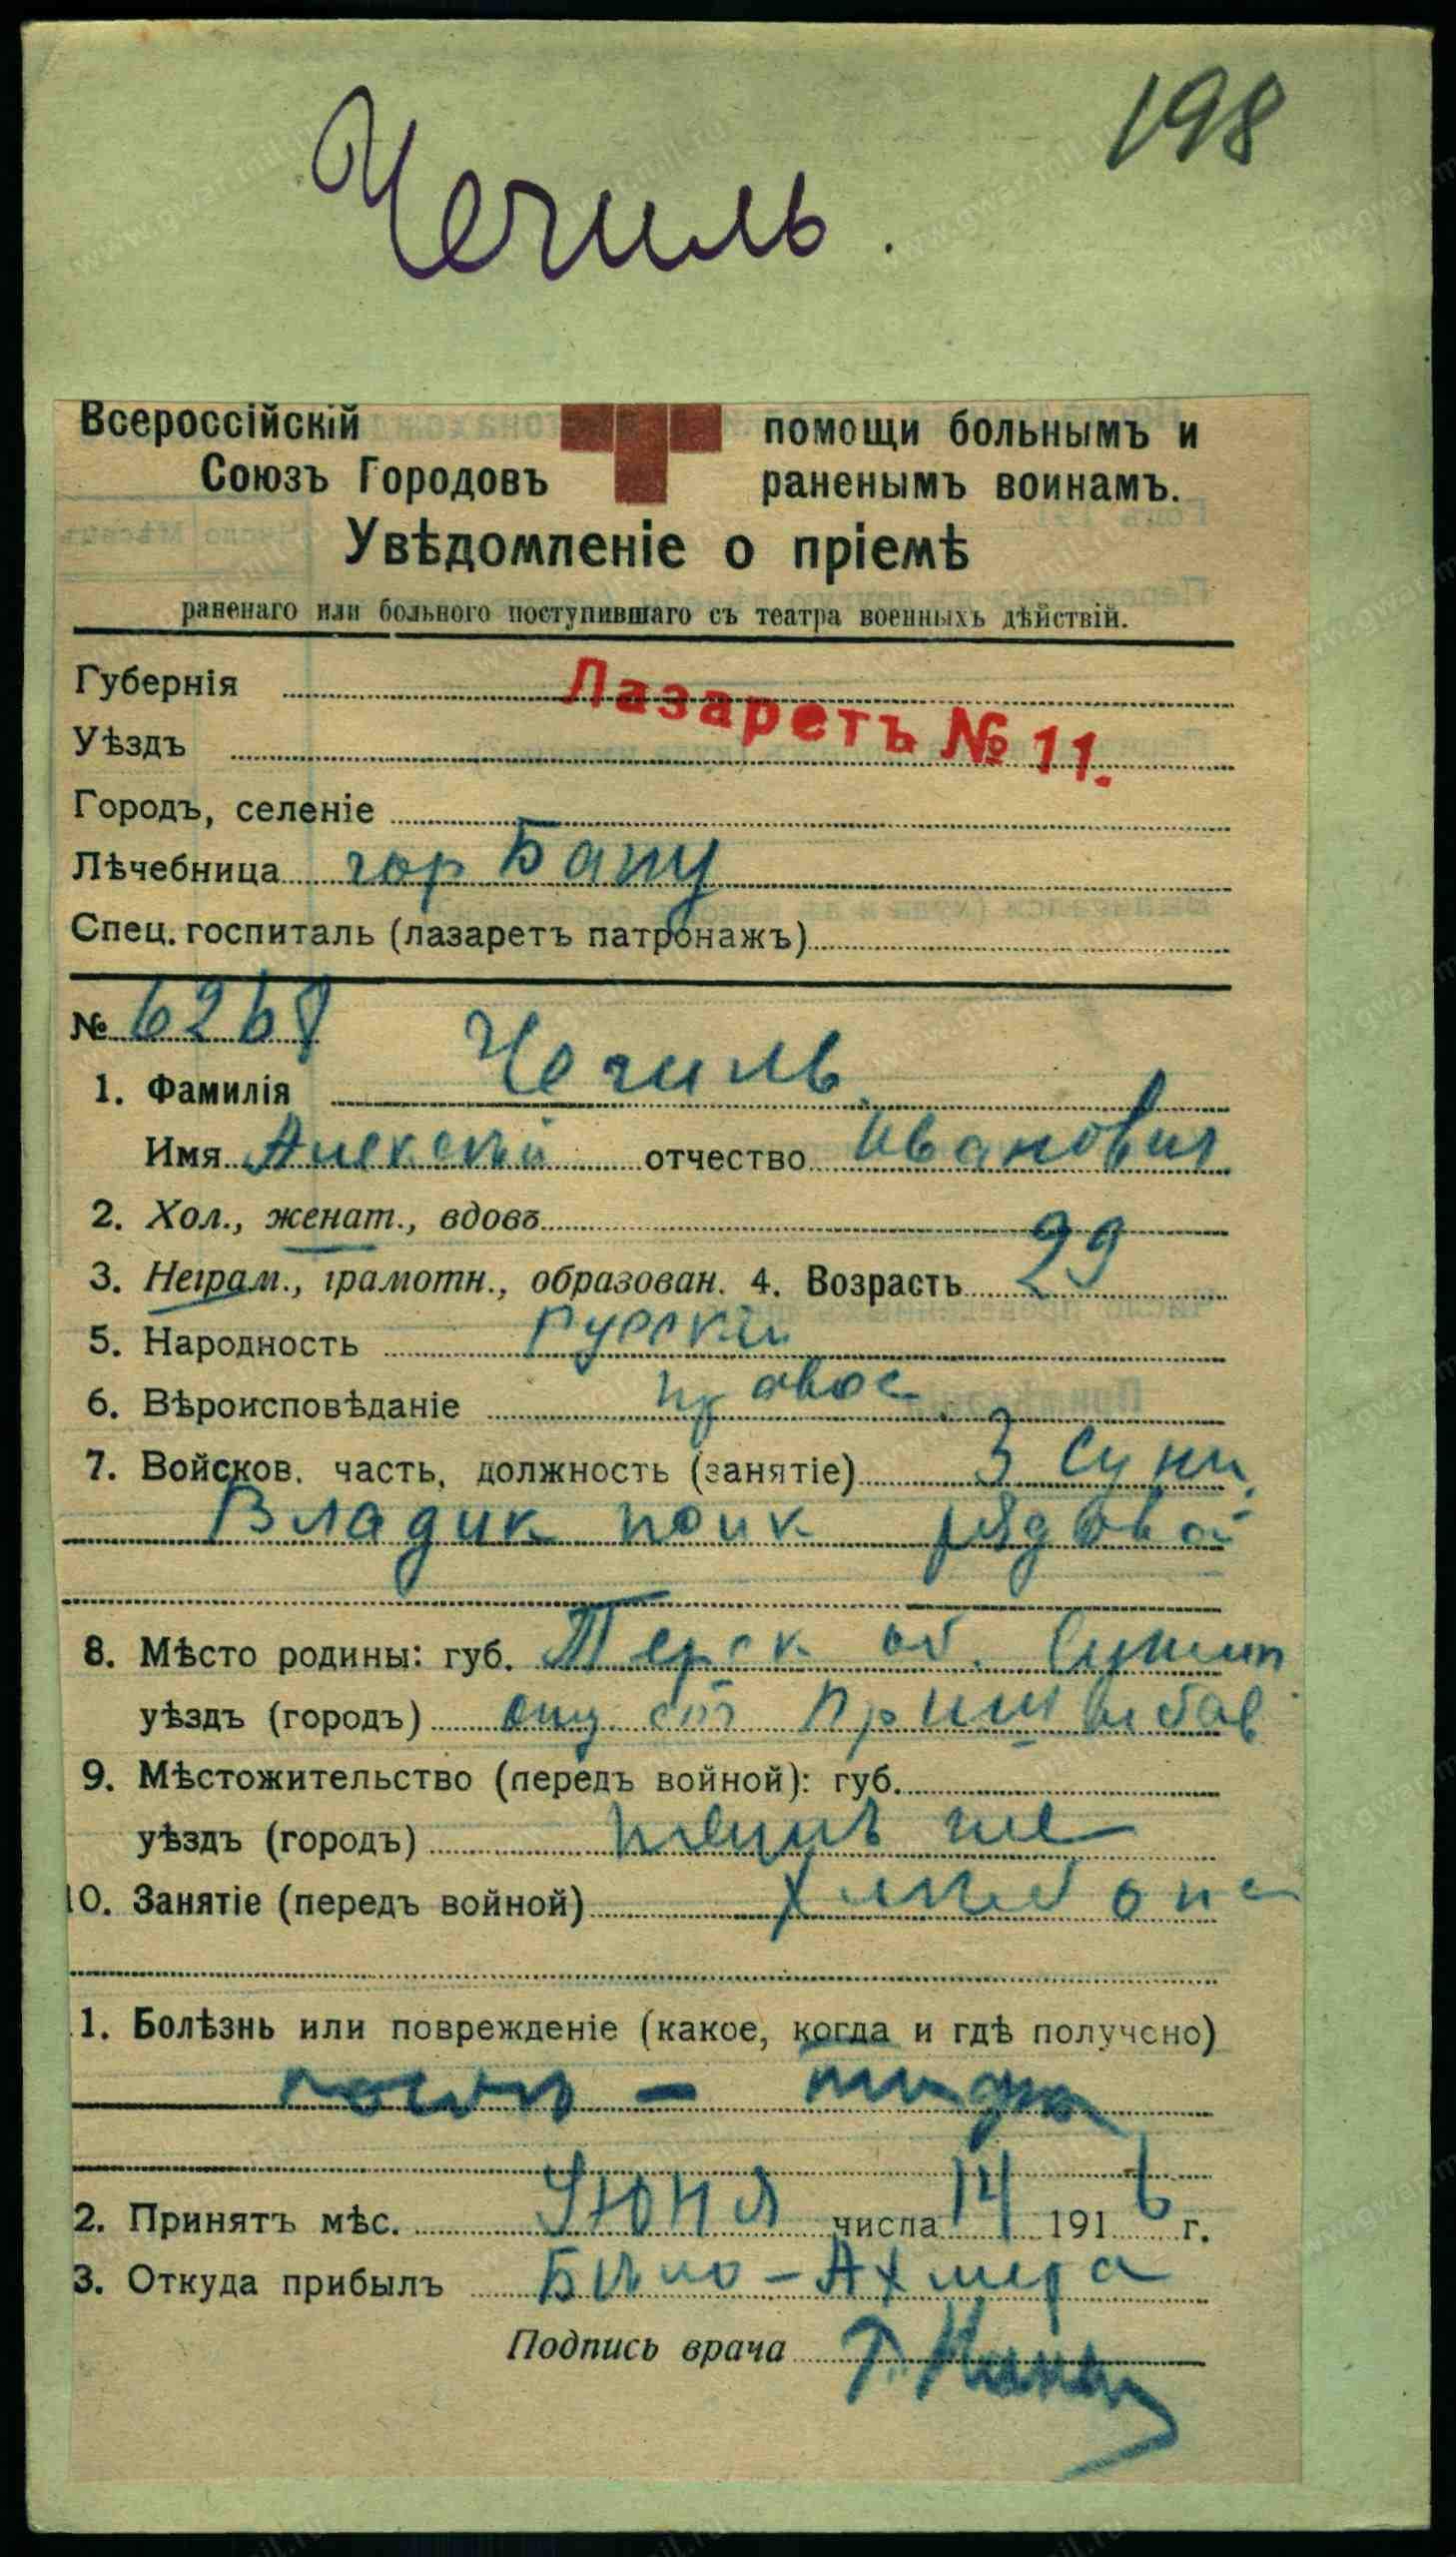 198
Чечиль.
Всероссійскій помощи больнымъ и
Союзъ Городовъ раненымъ воинамъ.
Увѣдомленіе о пріемѣ
раненаго или больного поступившаго съ театра военныхъ дѣйствій.
Губернія
Лазаретъ № 11.
Уѣздъ
Городъ, селеніе
Лѣчебница гор Баку
Спец. госпиталь (лазаретъ патронажъ)
№ 6268
1. Фамилія Чечиль
Имя Алексей отчество Иванович
2. Хол., женат., вдовъ
3. Неграм., грамотн., образован. 4. Возрастъ 29
5. Народность русски
6. Вѣроисповѣданіе правос
7. Войсков. часть, должность (занятіе) 3 Сунж.
Владик полк рядовой
8. Мѣсто родины: губ. Терск об.
уѣздъ (городъ)
9. Мѣстожительство (передъ войной): губ.
уѣздъ (городъ) же
10. Занятіе (передъ войной) хлебопа
1. Болѣзнь или поврежденіе (какое, когда и гдѣ получено)
2. Принятъ мѣс. Июня числа 14 1916 г.
3. Откуда прибылъ
Подпись врача